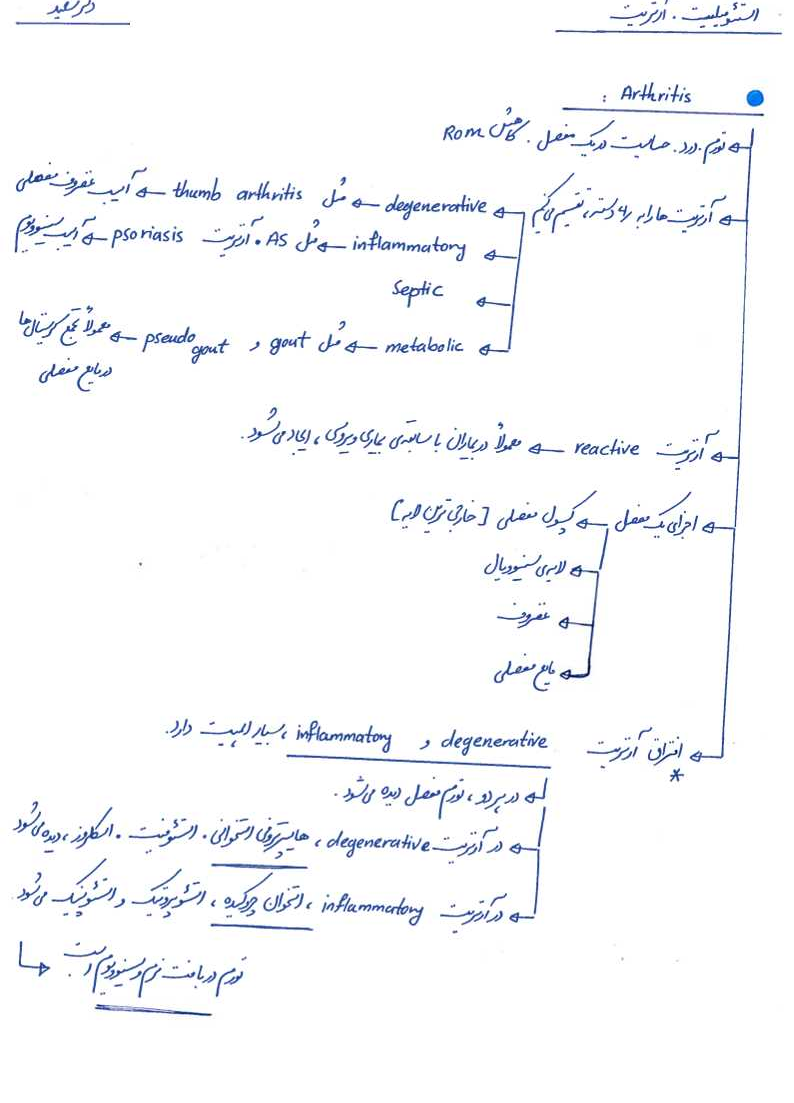 استئومیلیت . آرتریت
دکتر سعید
Arthritis :
تورم . درد . حساسیت در یک مفصل . کاهش Rom
آرتریت ها را به ۴ دسته، تقسیم می‌کنیم
degenerative مثل thumb arthritis آسیب غضروف مفصلی
inflammatory مثل AS . آرتریت psoriasis آسیب سینوویوم
Septic
metabolic مثل gout و pseudo gout معمولاً تجمع کریستال‌ها
در مایع مفصلی
آرتریت reactive معمولاً در بیماران با سابقه‌ی بیماری ویروسی، ایجاد می‌شود.
اجزای یک مفصل کپسول مفصلی [خارجی ترین لایه]
لایه‌ی سینوویال
غضروف
مایع مفصلی
افتراق آرتریت degenerative و inflammatory، بسیار اهمیت دارد.
*
در هر دو، تورم مفصل دیده می‌شود.
در آرتریت degenerative، هایپرتروفی استخوانی . استئوفیت . اسکلروز، دیده می‌شود
در آرتریت inflammatory، استخوان چروکیده، استئوپروتیک و استئوپنیک می‌شود.
تورم در بافت نرم و سینوویوم است